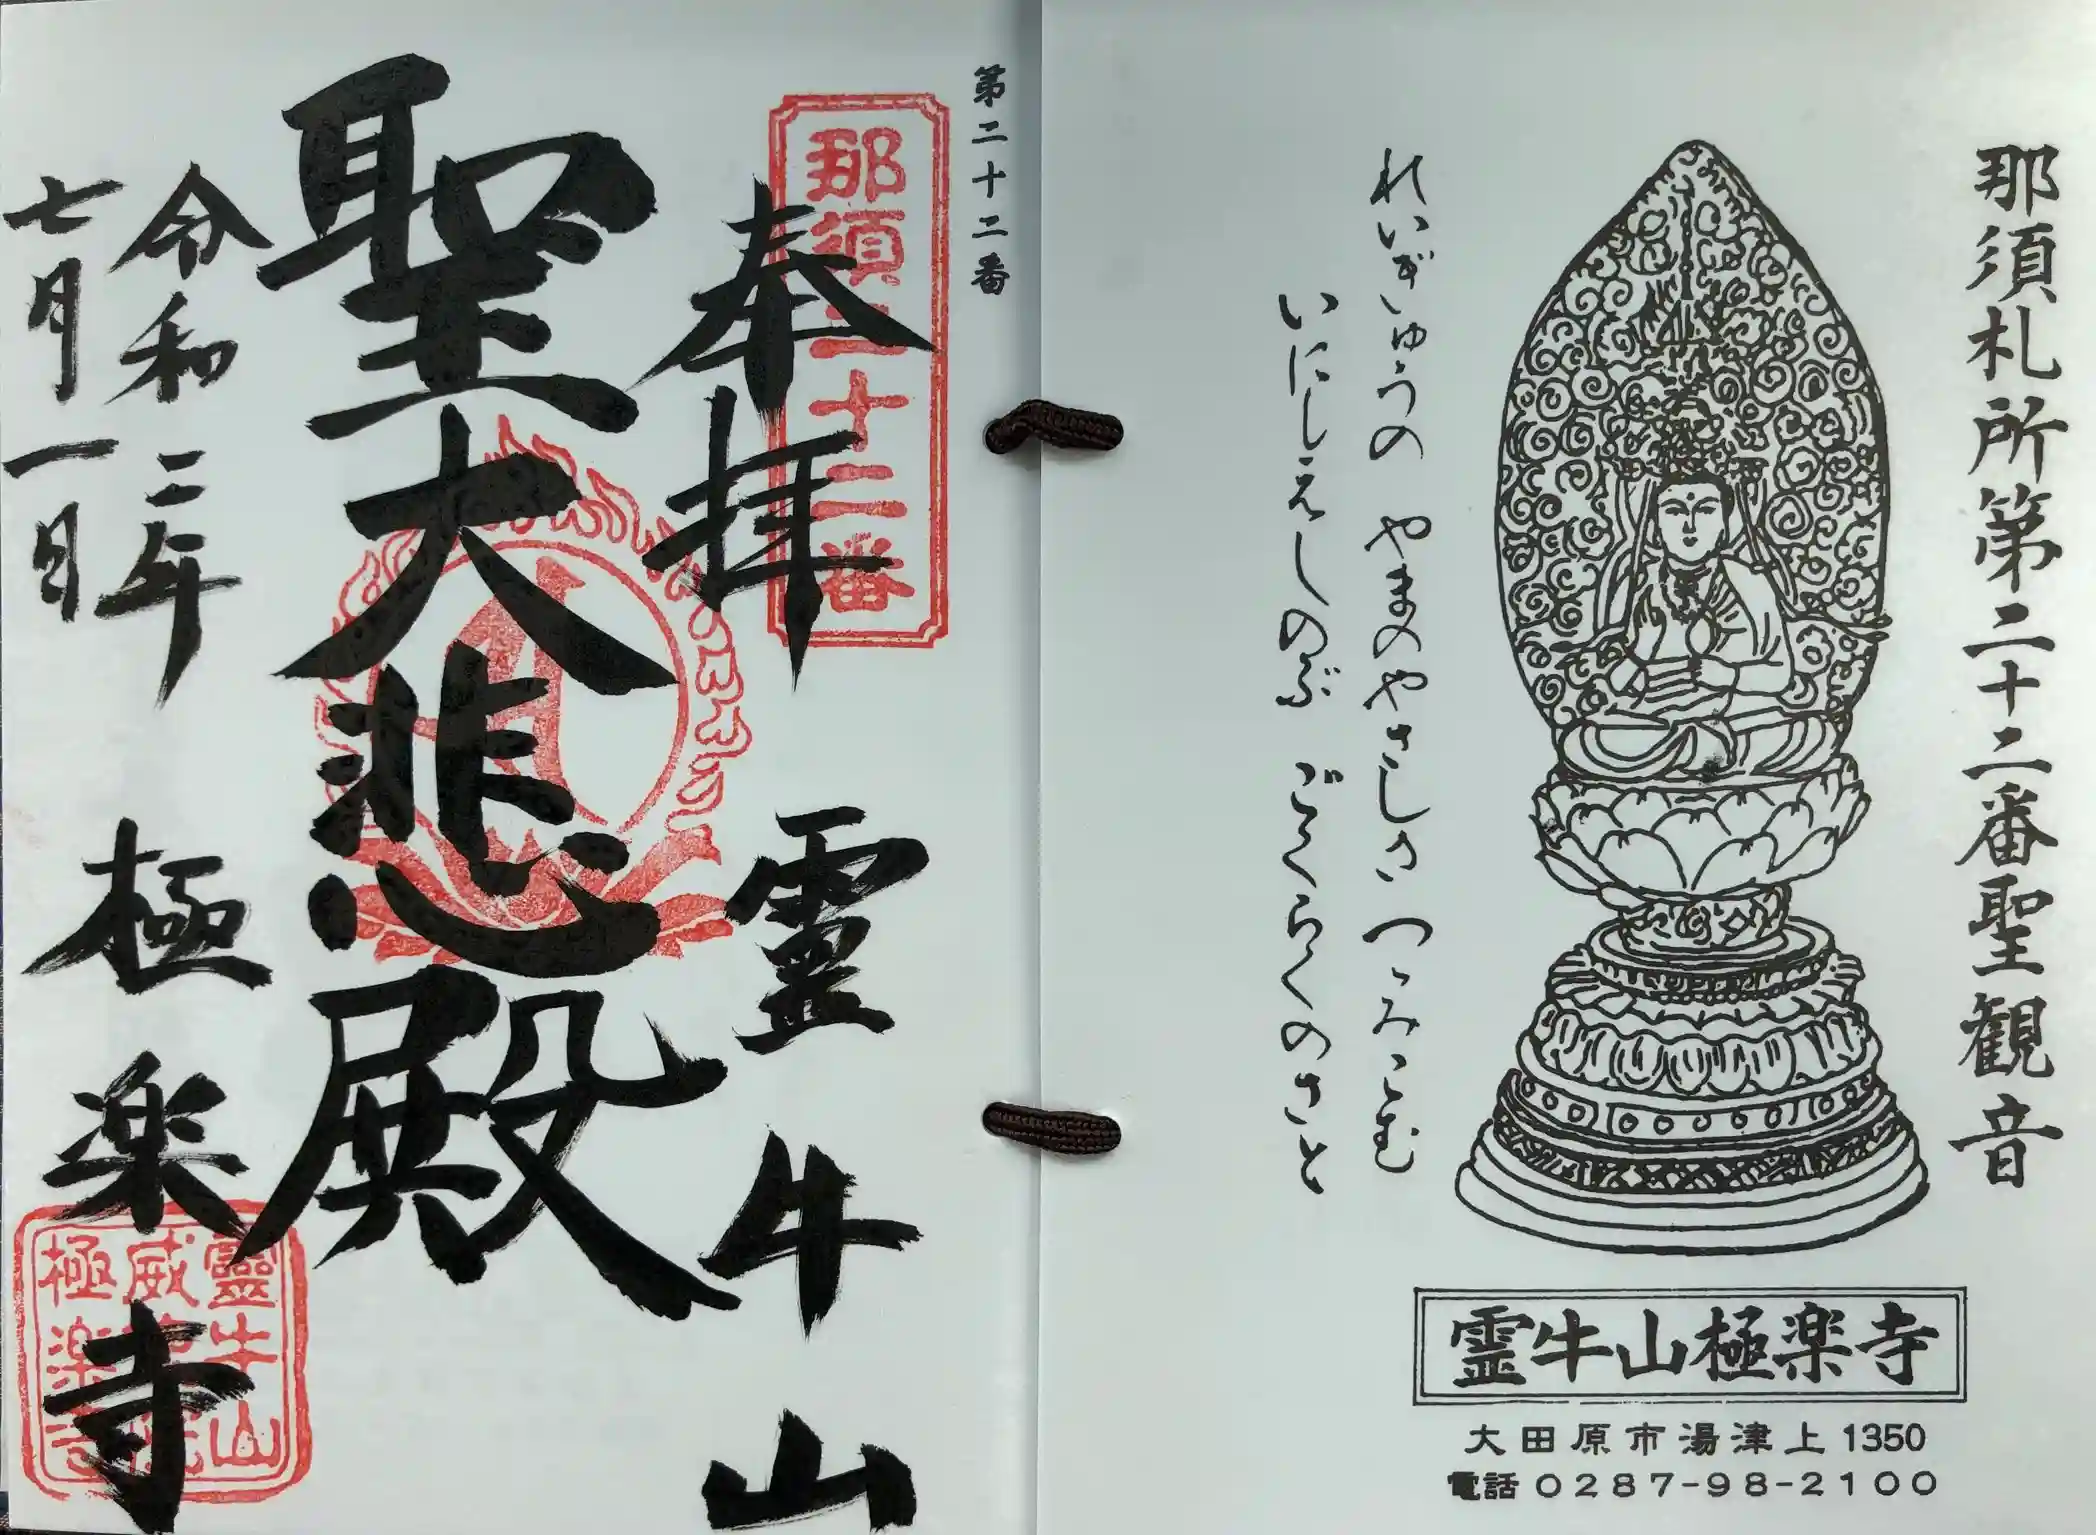 那須札所第二十二番聖観音
れいぎゅうの やまのやさしさ つゝみこむ
いにしえしのぶ ごくらくのさと
霊牛山極楽寺
大田原市湯津上1350
電話0287-98-2100
第二十二番
那須二十二番
奉拝 霊牛山
聖大悲殿
令和二年
七月一日
極楽寺
靈牛山
威
極楽寺